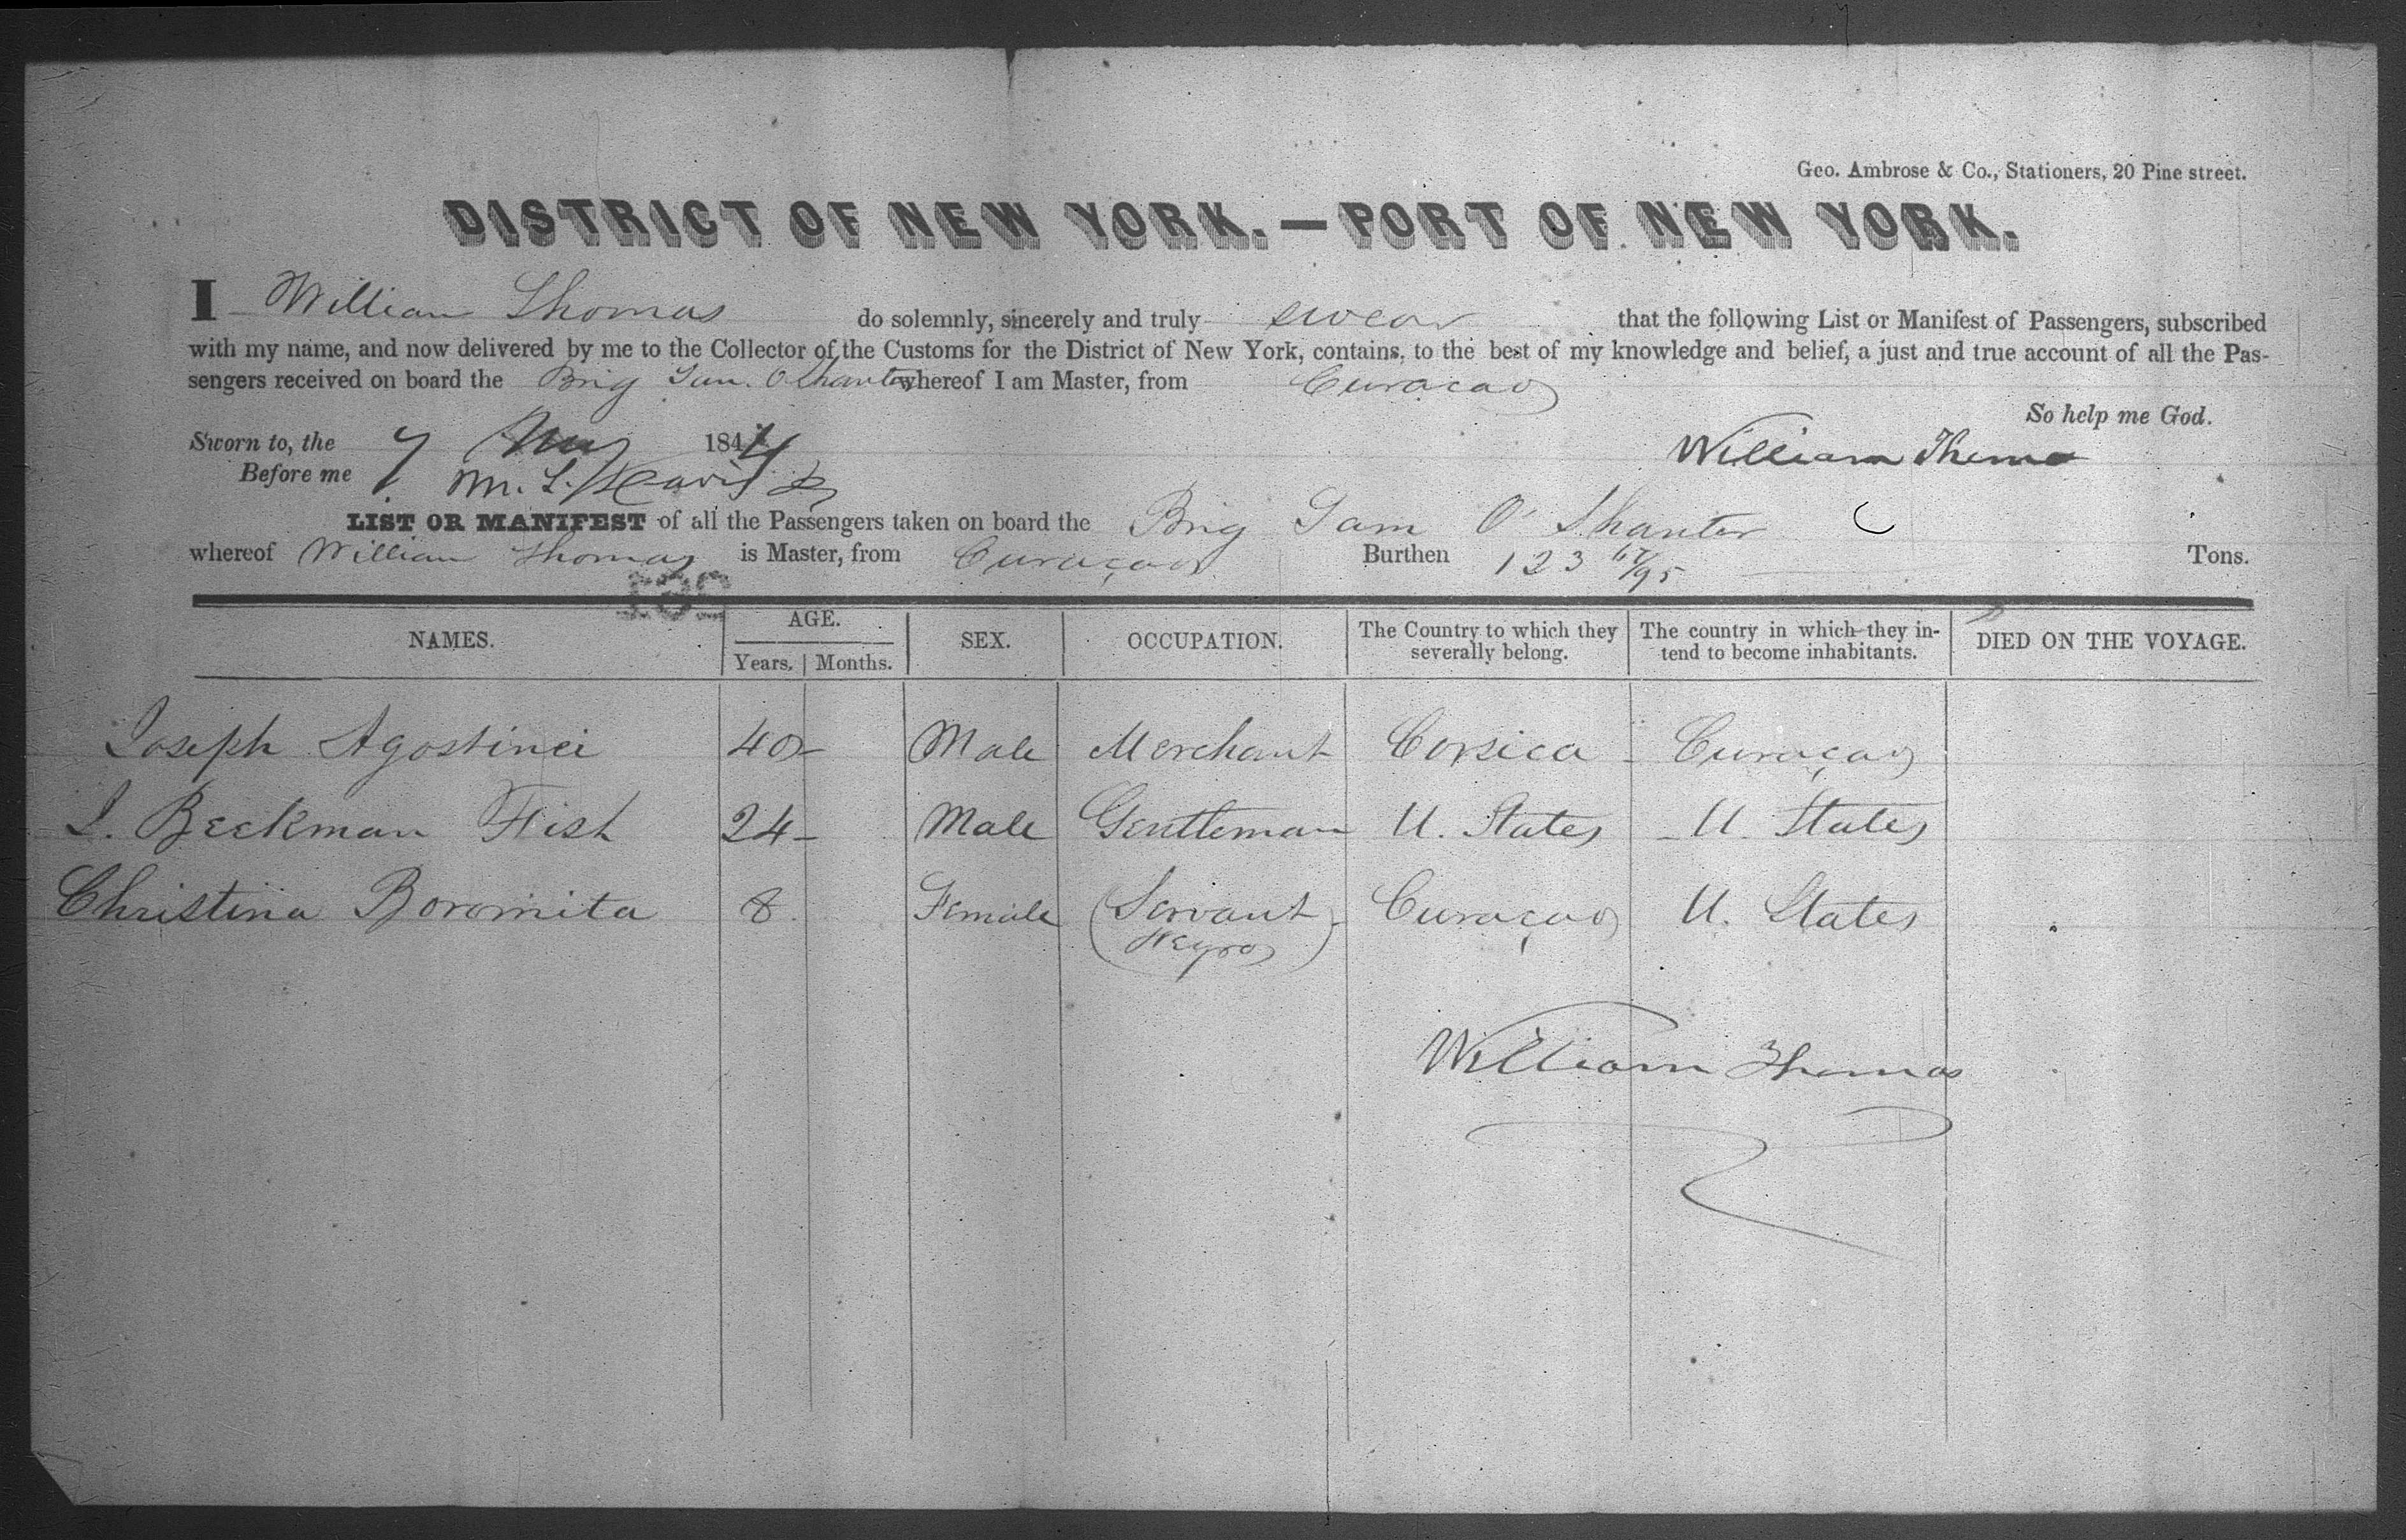 Geo. Ambrose & Co., Stationers, 20 Pine street.
DISTRICT OF NEW YORK.—PORT OF NEW YORK.
I William Thomas do solemnly, sincerely and truly swear that the following List or Manifest of Passengers, subscribed
with my name, and now delivered by me to the Collector of the Customs for the District of New York, contains, to the best of my knowledge and belief, a just and true account of all the Pas-
sengers received on board the Brig Tam. O Shanter whereof I am Master, from Curacao
So help me God.
Sworn to, the 7 1844 William Thomas
Before me
LIST OR MANIFEST of all the Passengers taken on board the Brig Tam O' Shanter
whereof William Thomas is Master, from Curaçao Burthen 123 67/95 Tons.
NAMES. AGE. Years. Months. SEX. OCCUPATION. The Country to which they severally belong. The country in which they in-tend to become inhabitants. DIED ON THE VOYAGE.
Joseph Agostinei 40 Male Merchant Corsica Curaçao
I. Beekman Fish 24 Male Gentleman U. States U. States
Christina Boromita 8 Female (Servant Curaçao U. States
Negro)
William Thomas